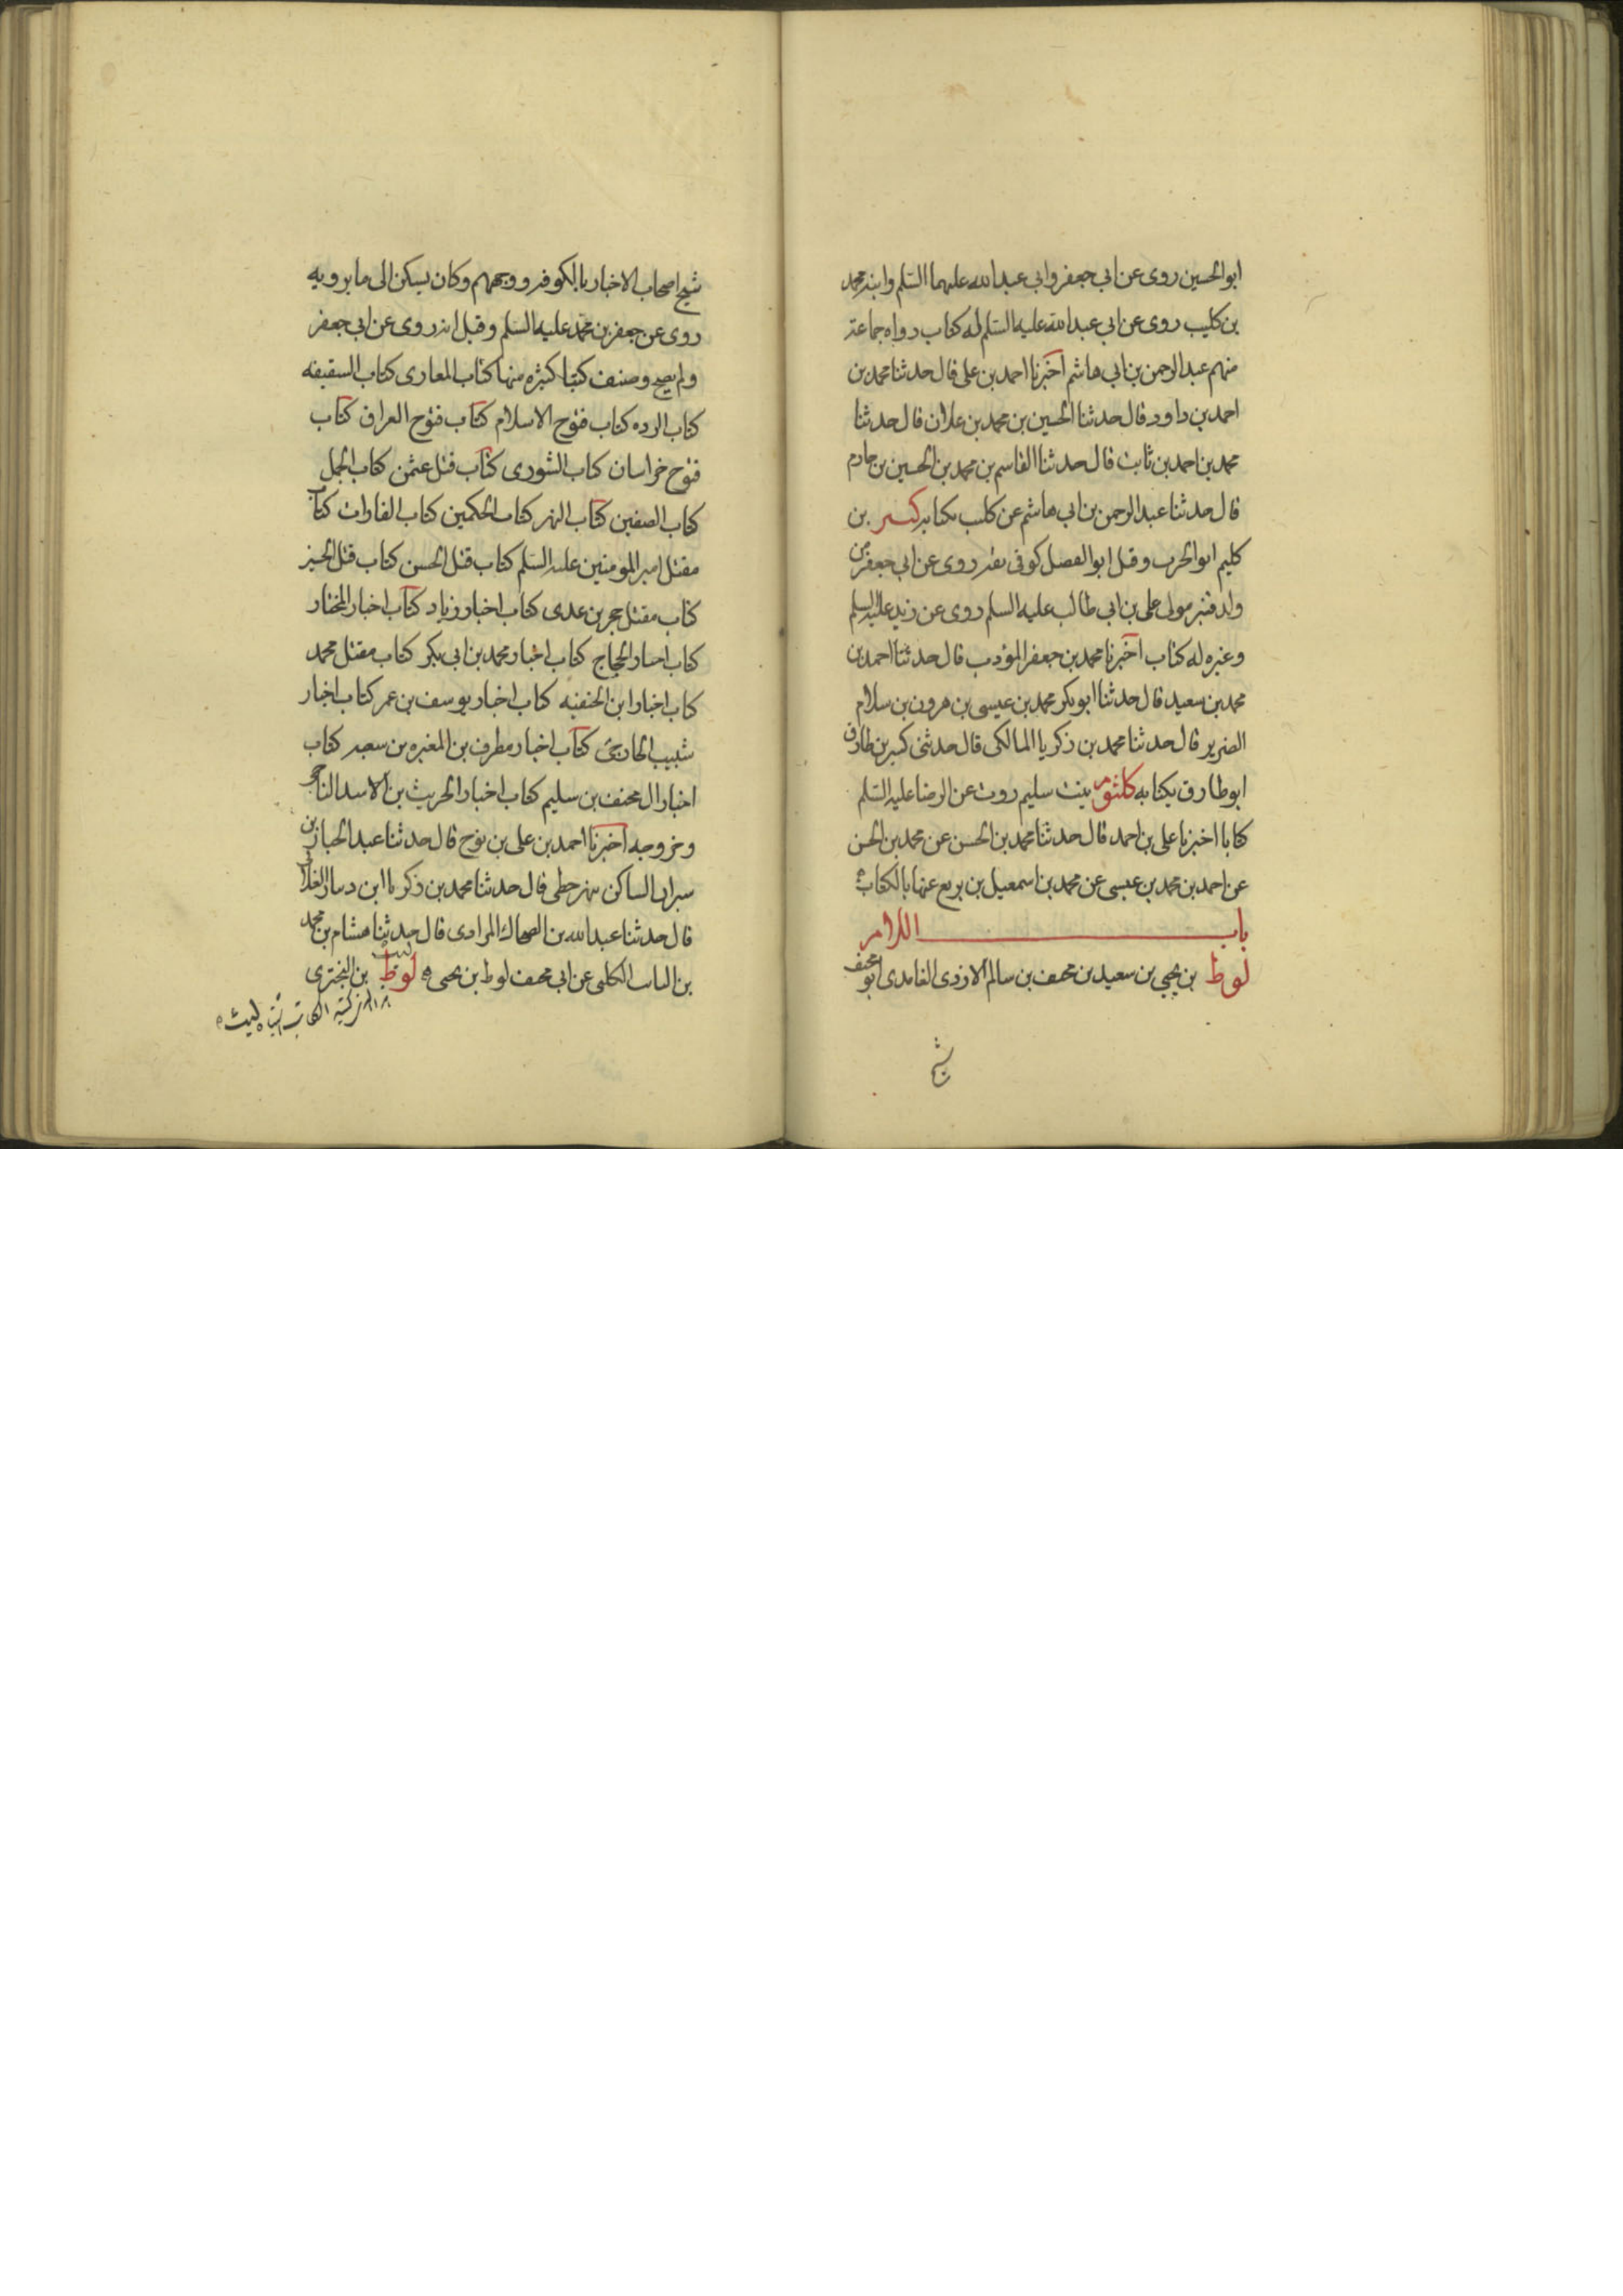 ابو الحسين روى عن ابي جعفر وابي عبد الله عليهما السلم وابنه محمد
بن كليب روى عن ابي عبد الله عليه السلم له كتاب رواه جماعة
منهم عبد الرحمن بن ابي هاشم اخبرنا احمد بن على قال حدثنا محمد بن
احمد بن داود قال حدثنا الحسين بن محمد بن علان قال حدثنا
محمد بن احمد بن ثابت قال حدثنا القاسم بن محمد بن الحسين بن حازم
قال حدثنا عبد الرحمن بن ابي هاشم عن كليب بكتابه كثير بن
كليم ابو الحرب وقيل ابو الفضل كوفى ثقه روى عن ابي جعفر من
ولد قنبر مولى على بن ابي طالب عليه السلم روى عن زيد عليه السلم
وغيره له كتاب اخبرنا محمد بن جعفر المؤدب قال حدثنا احمد بن
محمد بن سعيد قال حدثنا ابو بكر محمد بن عيسى بن هرون بن سلام
الضرير قال حدثنا محمد بن زكريا المالكى قال حدثنى كثير بن طارق
ابو طارق بكتابه كلثوم بنت سليم روت عن الرضا عليه السلم
كتابا اخبرنا على بن احمد قال حدثنا محمد بن الحسن عن محمد بن الحسن
عن احمد بن محمد بن عيسى عن محمد بن اسمعيل بن بزيع عنها بالكتاب
باب اللام
لوط بن يحيى بن سعيد بن مخنف بن سالم الازدى الغامدى ابو مخنف
شيخ
شيخ اصحاب الاخبار بالكوفه ووجههم وكان يسكن الى ما يرويه
روى عن جعفر بن محمد عليه السلم وقيل انه روى عن ابي جعفر
ولم يصح وصنف كتبا كثيره منها كتاب المغازى كتاب السقيفه
كتاب الرده كتاب فتوح الاسلام كتاب فتوح العراق كتاب
فتوح خراسان كتاب الشورى كتاب قتل عثمن كتاب الجمل
كتاب الصفين كتاب النهر كتاب الحكمين كتاب الغارات كتاب
مقتل امير المومنين عليه السلم كتاب قتل الحسن كتاب قتل الحسين
كتاب مقتل حجر بن عدى كتاب اخبار زياد كتاب اخبار المختار
كتاب اخبار الحجاج كتاب اخبار محمد بن ابي بكر كتاب مقتل محمد
كتاب اخبار ابن الحنفيه كتاب اخبار يوسف بن عمر كتاب اخبار
شبيب الخارجى كتاب اخبار مطرف بن المغيره بن سعبه كتاب
اخبار ال مخنف بن سليم كتاب اخبار الحريث بن الاسد الناجى
وخروجه اخبرنا احمد بن على بن نوح قال حدثنا عبد الجبار بن
الساكن نهر حطى قال حدثنا محمد بن زكريا ابن دينار الغلابى
قال حدثنا عبد الله بن الضحاك المرادى قال حدثنا هشام بن محمد
بن السائب الكلبى عن ابي مخنف لوط بن يحيى لوط بن البخترى